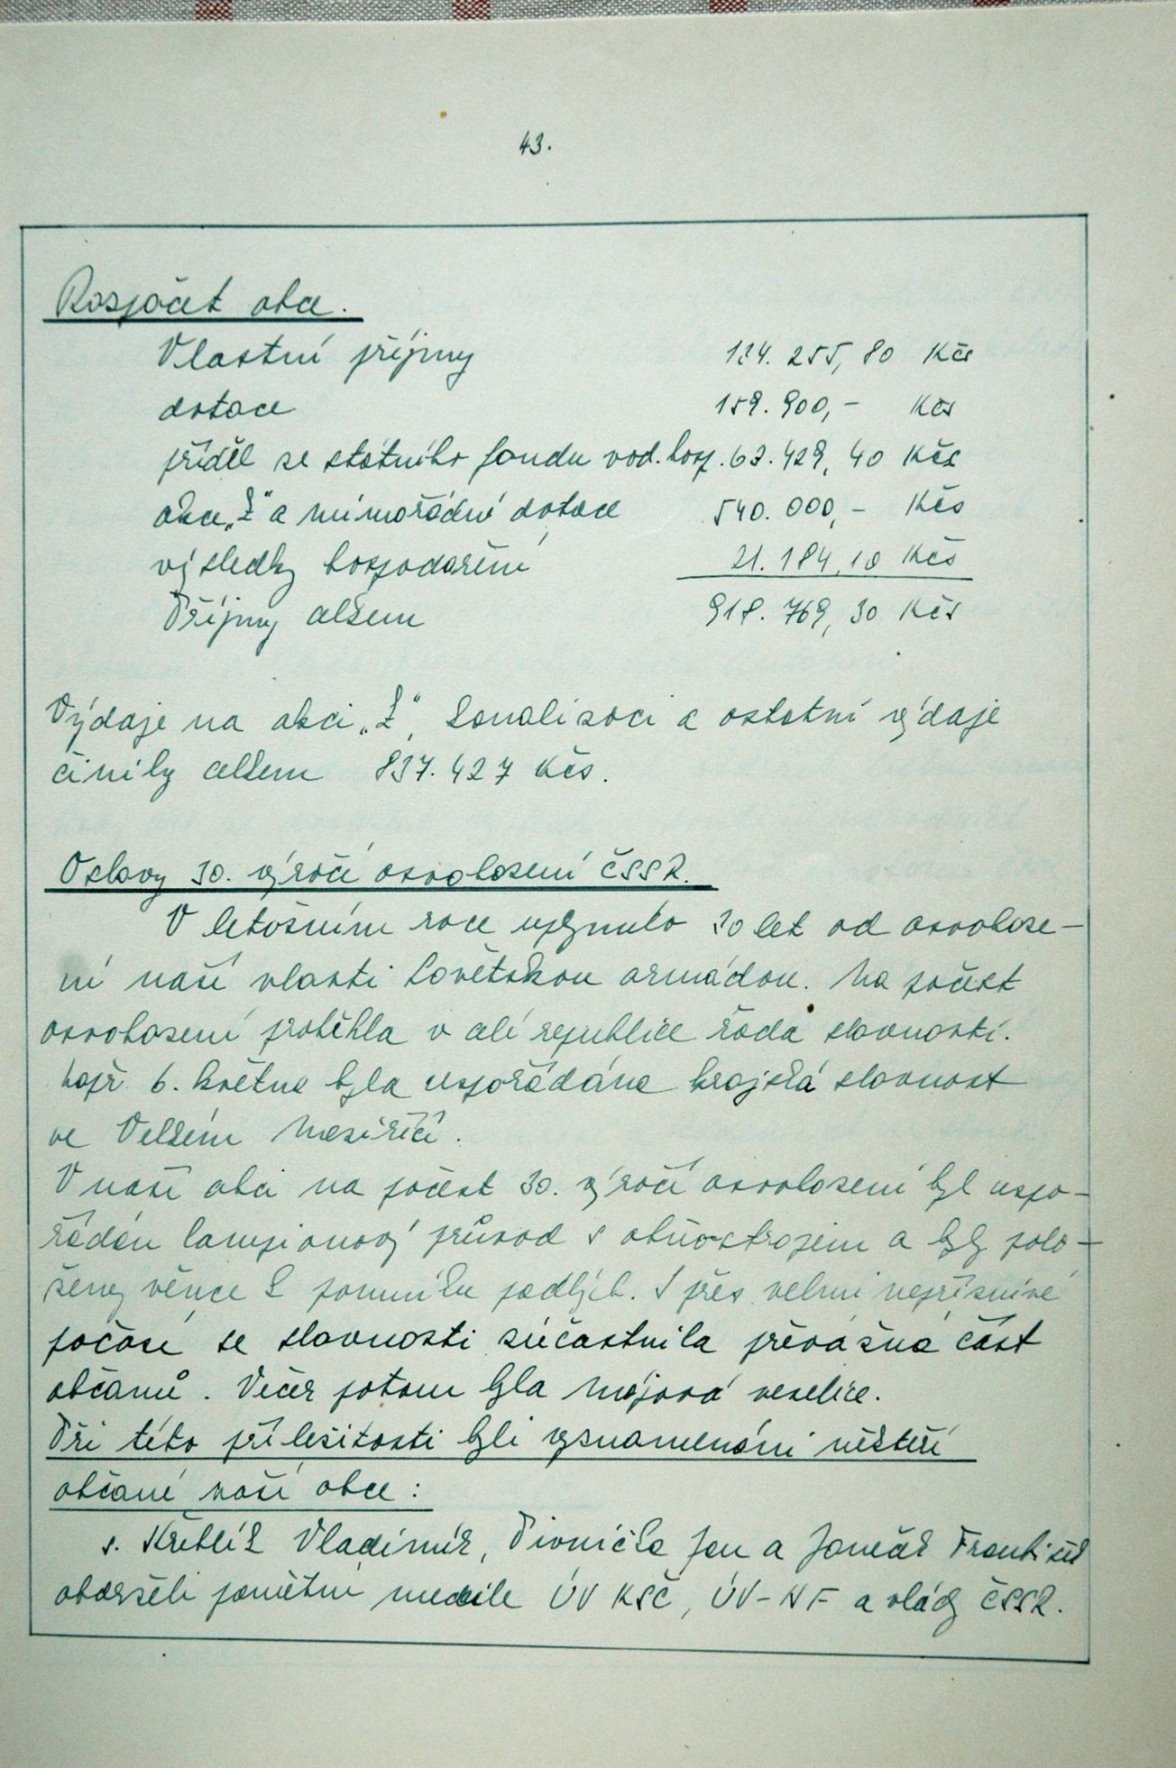 43.
Rozpočet obce.
Vlastní příjmy 124.255,80 Kčs
dotace 159.900,- Kčs
příděl ze státního fondu vod. hosp. 63.429,40 Kčs
akce „Z“ a mimořádné dotace 540.000,- Kčs
výsledky hospodaření 21.184,10 Kčs
Příjmy celkem 918.769,30 Kčs
Výdaje na akci „Z“, kanalizaci a ostatní výdaje
činily celkem 837.427 Kčs.
Oslavy 30. výročí osvobození ČSSR.
V letošním roce uplynulo 30 let od osvoboze-
ní naší vlasti Sovětskou armádou. Na počest
osvobození proběhla v celé republice řada slavností.
Např. 6. května byla uspořádána krajská slavnost
ve Velkém Meziříčí.
V naší obci na počest 30. výročí osvobození byl uspo-
řádán lampionový průvod s ohňostrojem a byly polo-
ženy věnce k pomníku padlých. I přes velmi nepříznivé
počasí se slavnosti zúčastnila převážná část
občanů. Večer potom byla májová veselice.
Při této příležitosti byli vyznamenáni někteří
občané naší obce:
s. Křehlík Vladimír, Pivnička Jan a Janečk František
obdrželi pamětní medaile ÚV KSČ, ÚV-NF a vlády ČSSR.